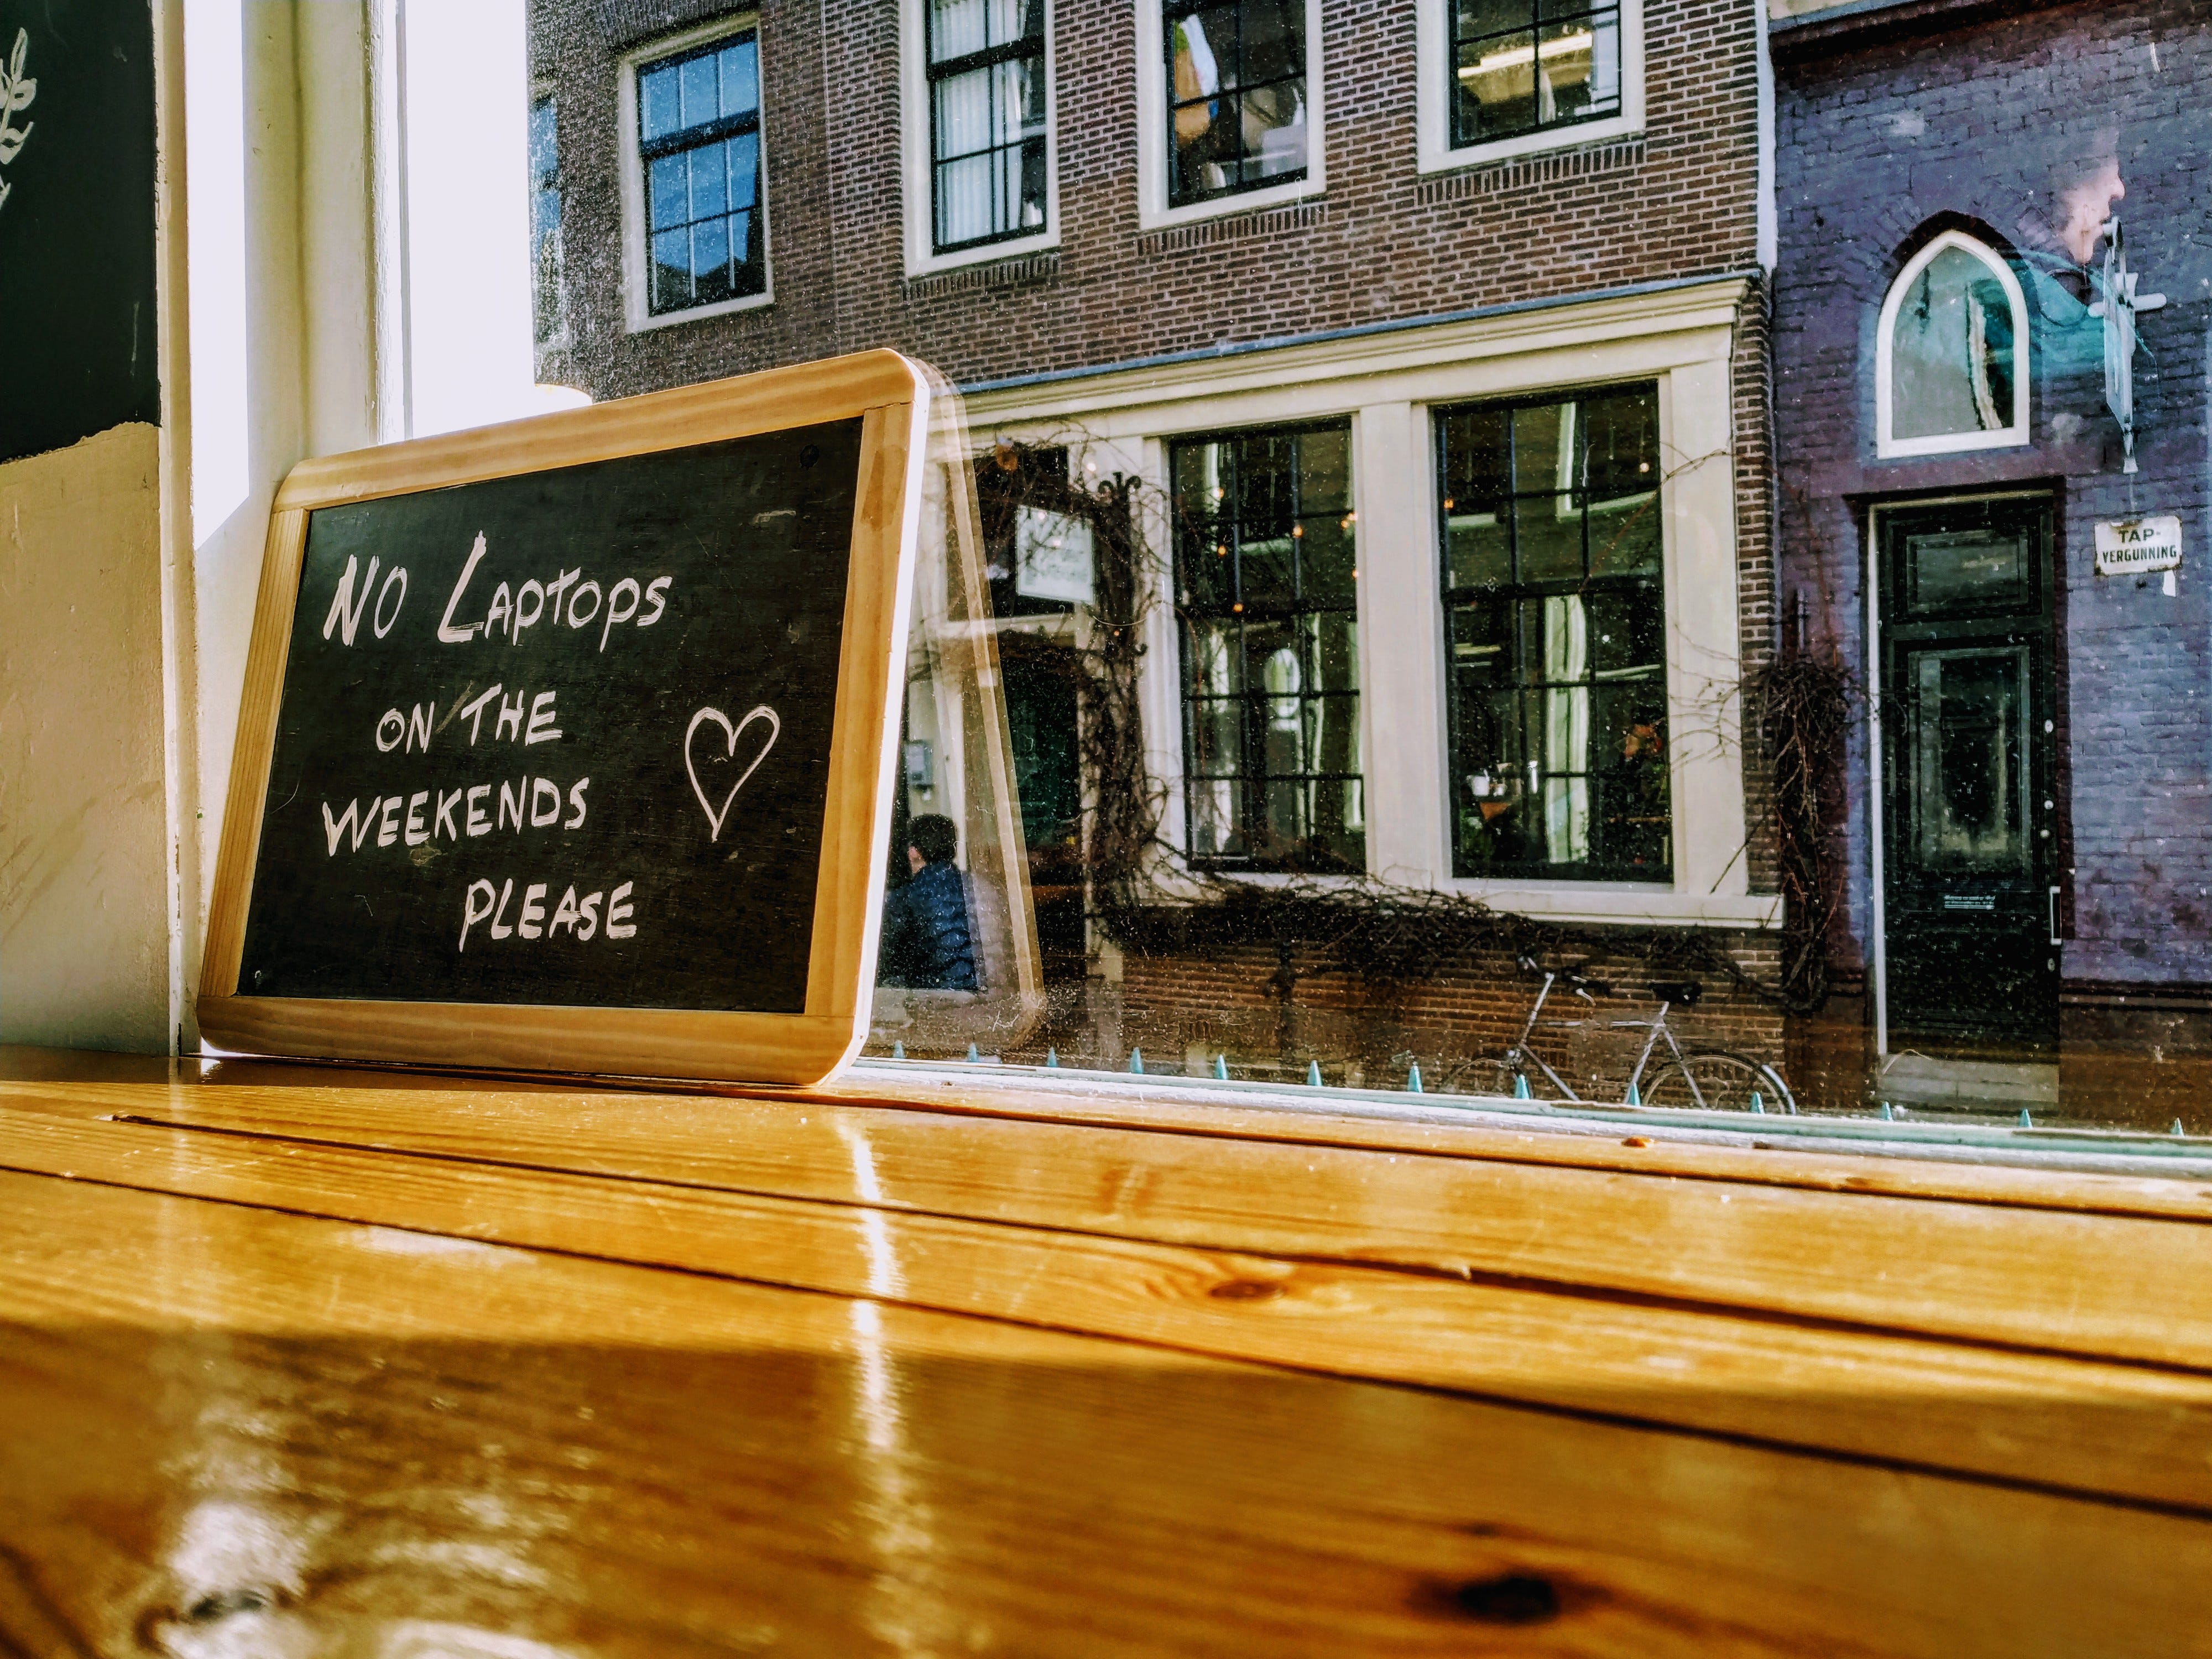 No Laptops
ON THE
WEEKENDS
PLEASE
TAP-
VERGUNNING